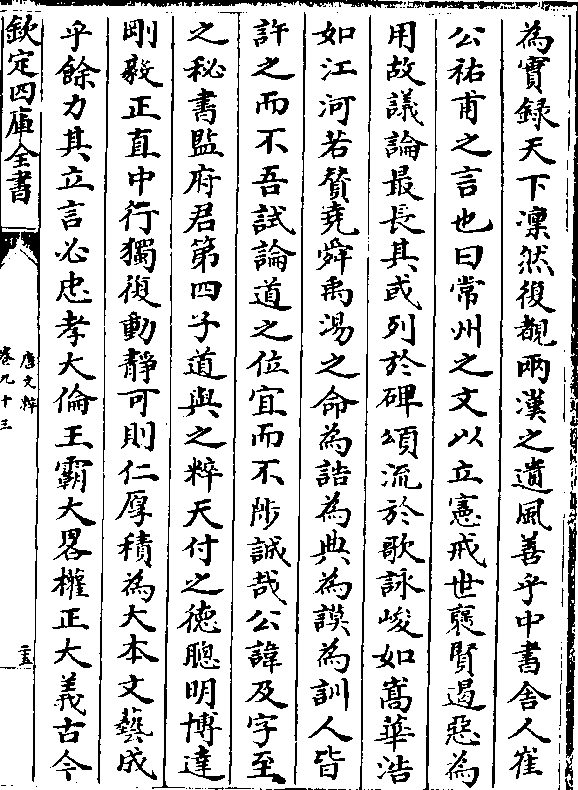 為實録天下凛然復覩兩漢之遺風善乎中書舍人崔
公祐甫之言也曰常州之文以立憲戒世褒賢遏惡為
用故議論最長其或列於碑頌流於歌詠峻如嵩華浩
如江河若賛堯舜禹湯之命為誥為典為謨為訓人皆
許之而不吾試論道之位宜而不陟誠哉公諱及字至
之秘書監府君第四子道與之粹天付之德聰明博達
剛毅正直中行獨復動静可則仁厚積為大本文藝成
乎餘力其立言必忠孝大倫王霸大畧權正大義古今
欽定四庫全書
唐文粹
卷九十三
二五